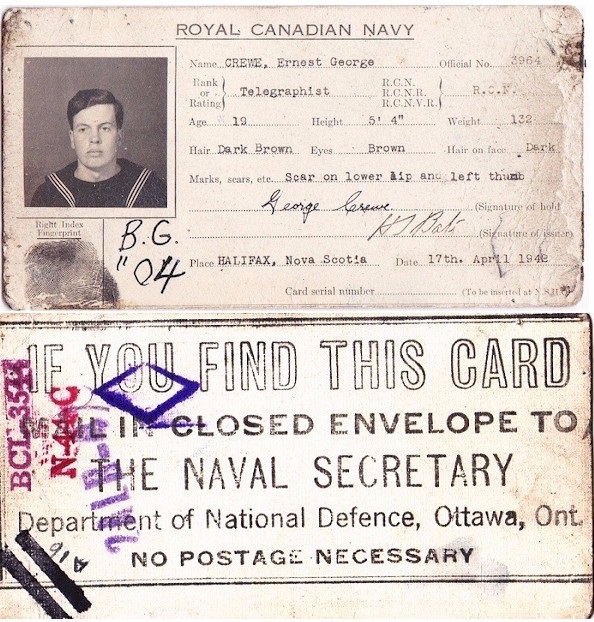 ROYAL CANADIAN NAVY
Name CREWE, Ernest George Official No. 3964
Rank or Rating } Telegraphist R.C.N. R.C.N.R. R.C.N.V.R. } R.C.N.
Age 19 Height 5' 4" Weight 132
Hair Dark Brown Eyes Brown Hair on face Dark
Marks, scars, etc. Scar on lower lip and left thumb
George Crewe (Signature of hold
(Signature of issuer)
Right Index
Fingerprint
B.G.
"04
Place HALIFAX, Nova Scotia Date 17th. April 1942
Card serial number (To be inserted at N.S.H
IF YOU FIND THIS CARD
MAIL IN CLOSED ENVELOPE TO
THE NAVAL SECRETARY
Department of National Defence, Ottawa, Ont.
NO POSTAGE NECESSARY
BCL 3544
N-44C
A16